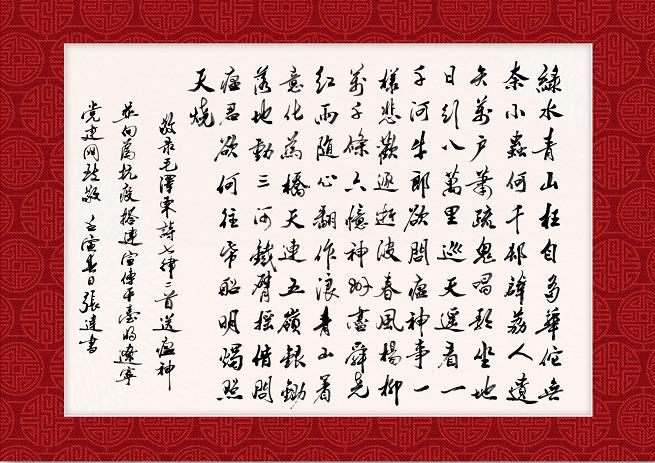 綠水青山枉自多華佗無
奈小蟲何千邨薜荔人遺
矢萬户萧疏鬼唱歌坐地
日行八萬里巡天遥看一
千河牛郎欲問瘟神事一
樣悲歡逐逝波春風楊柳
萬千條六億神州盡舜尧
紅雨随心翻作浪青山着
意化為橋天連五嶺銀鋤
落地動三河鐵臂摇借問
瘟君欲何往帋船明燭照
天燒
敬录毛澤東詩七律二首送瘟神
并向為抗疫搭建宣傳平臺的遼寧
党建网致敬 壬寅春日張書